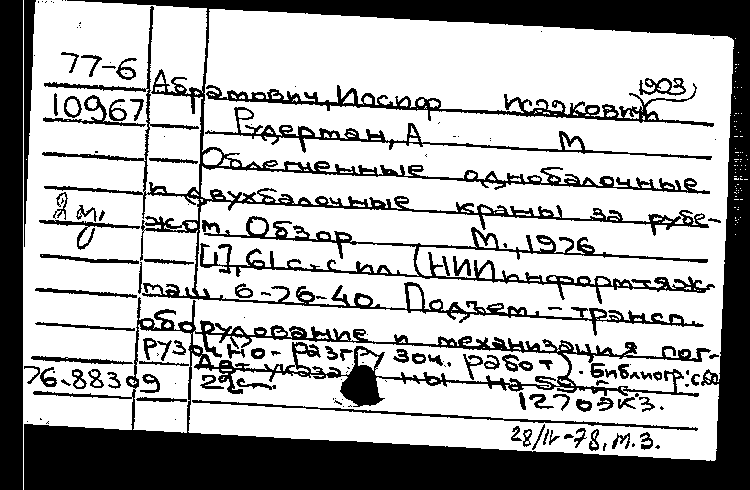 77-6
10967
1903
Абрамович, Иосиф Исаакович
Рудерман, А М
Облегченные однобалочные
и двухбалочные краны за рубе-
2 эк.
жом. Обзор. М., 1976.
[1], 61 с. с ил. (НИИинформтяж-
маш. 6-76-40. Подъем.-трансп.
оборудование и механизация пог-
рузочно-разгрузоч. работ). Библиогр.: с. 60
Авт. указаны на 59-й с.
76.88309 22 см. 1270 экз.
28/IV-78, М.З.